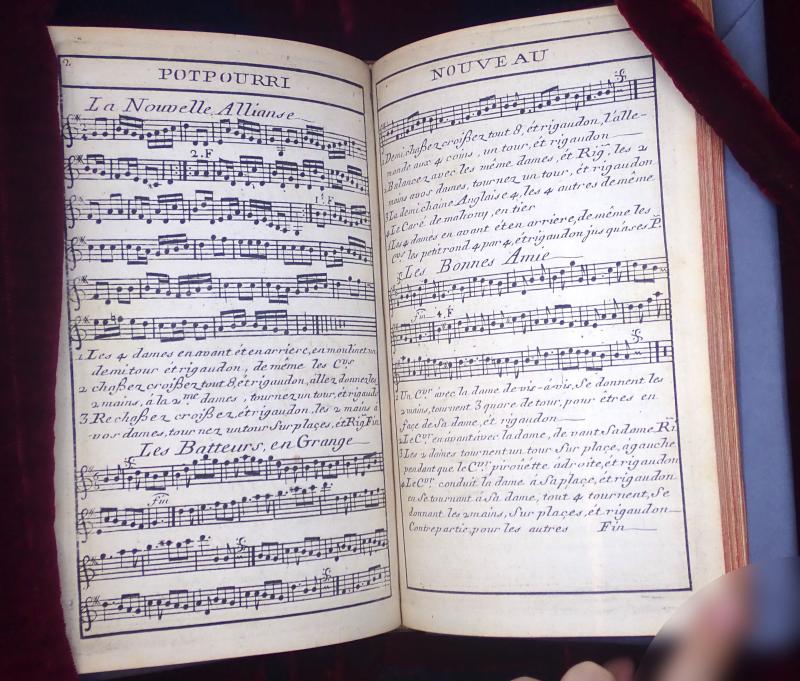 2.
POTPOURRI
La Nouvelle Allianse
2.F
1.F
1 Les 4 dames en avant et en arriere, en moulinet un
demi tour et rigaudon, de même les Crs
2 chaßez croißez tout 8, et rigaudon, allez donner les
2 mains, à la 2me dames, tournez un tour, et rigaudon
3 Re chaßez croißez et rigaudon, les 2 mains a
vos dames, tournez un tour Sur places, et Rig Fin
Les Batteurs, en Grange
Fin
NOUVEAU
1 Demi chaßez croißez tout 8, et rigaudon, l'alle-
mande aux 4 coins, un tour, et rigaudon
2 Balancez avec les même dames, et Rig, les 2
mains a vos dames, tournez un tour, et rigaudon
3 La demi chaine Anglaise 4, les 4 autres de même
4 Le Caré de mahony, en tier
5 Les 4 dames en avant et en arriere, de même les
Crs les petit rond 4 par 4, et rigaudon jus qu'a ses P.
Les Bonnes Amie
Fin 4.F
1 Un Cvr avec la dame de vis-à-vis, Se donnent les
2 mains, tournent 3 quare de tour, pour êtres en
face de Sa dame, et rigaudon
2 Le Cvr en avant avec la dame, de vant Sa dame Ri
3 Les 2 dames tournent un tour Sur plaçe, à gauche
pendant que le Cvr piroüette à droite, et rigaudon
4 Le Cvr conduit la dame à Sa plaçe, et rigaudon
en Se tournant à Sa dame, tout 4 tournent, Se
donnant les 2 mains, Sur plaçes, et rigaudon
Contrepartie, pour les autres Fin